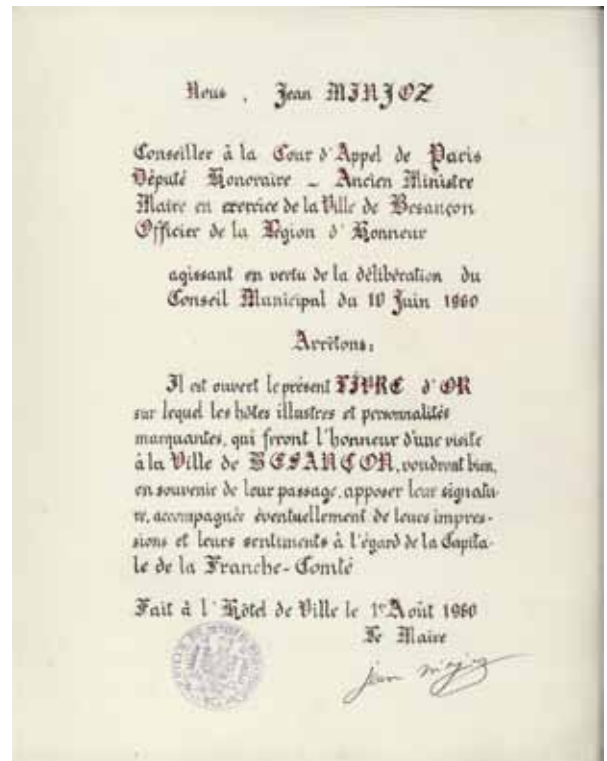 Nous , Jean MINJOZ
Conseiller à la Cour d'Appel de Paris
Député Honoraire - Ancien Ministre
Maire en exercice de la Ville de Besançon
Officier de la Légion d'Honneur
agissant en vertu de la délibération du
Conseil Municipal du 10 Juin 1960
Arrêtons:
Il est ouvert le présent LIVRE d'OR
sur lequel les hôtes illustres et personnalités
marquantes, qui feront l'honneur d'une visite
à la Ville de BESANÇON, voudront bien,
en souvenir de leur passage, apposer leur signatu-
re, accompagnée éventuellement de leurs impres-
sions et leurs sentiments à l'égard de la Capita-
le de la Franche-Comté
Fait à l'Hôtel de Ville le 1er Août 1960
Le Maire
jean minjoz